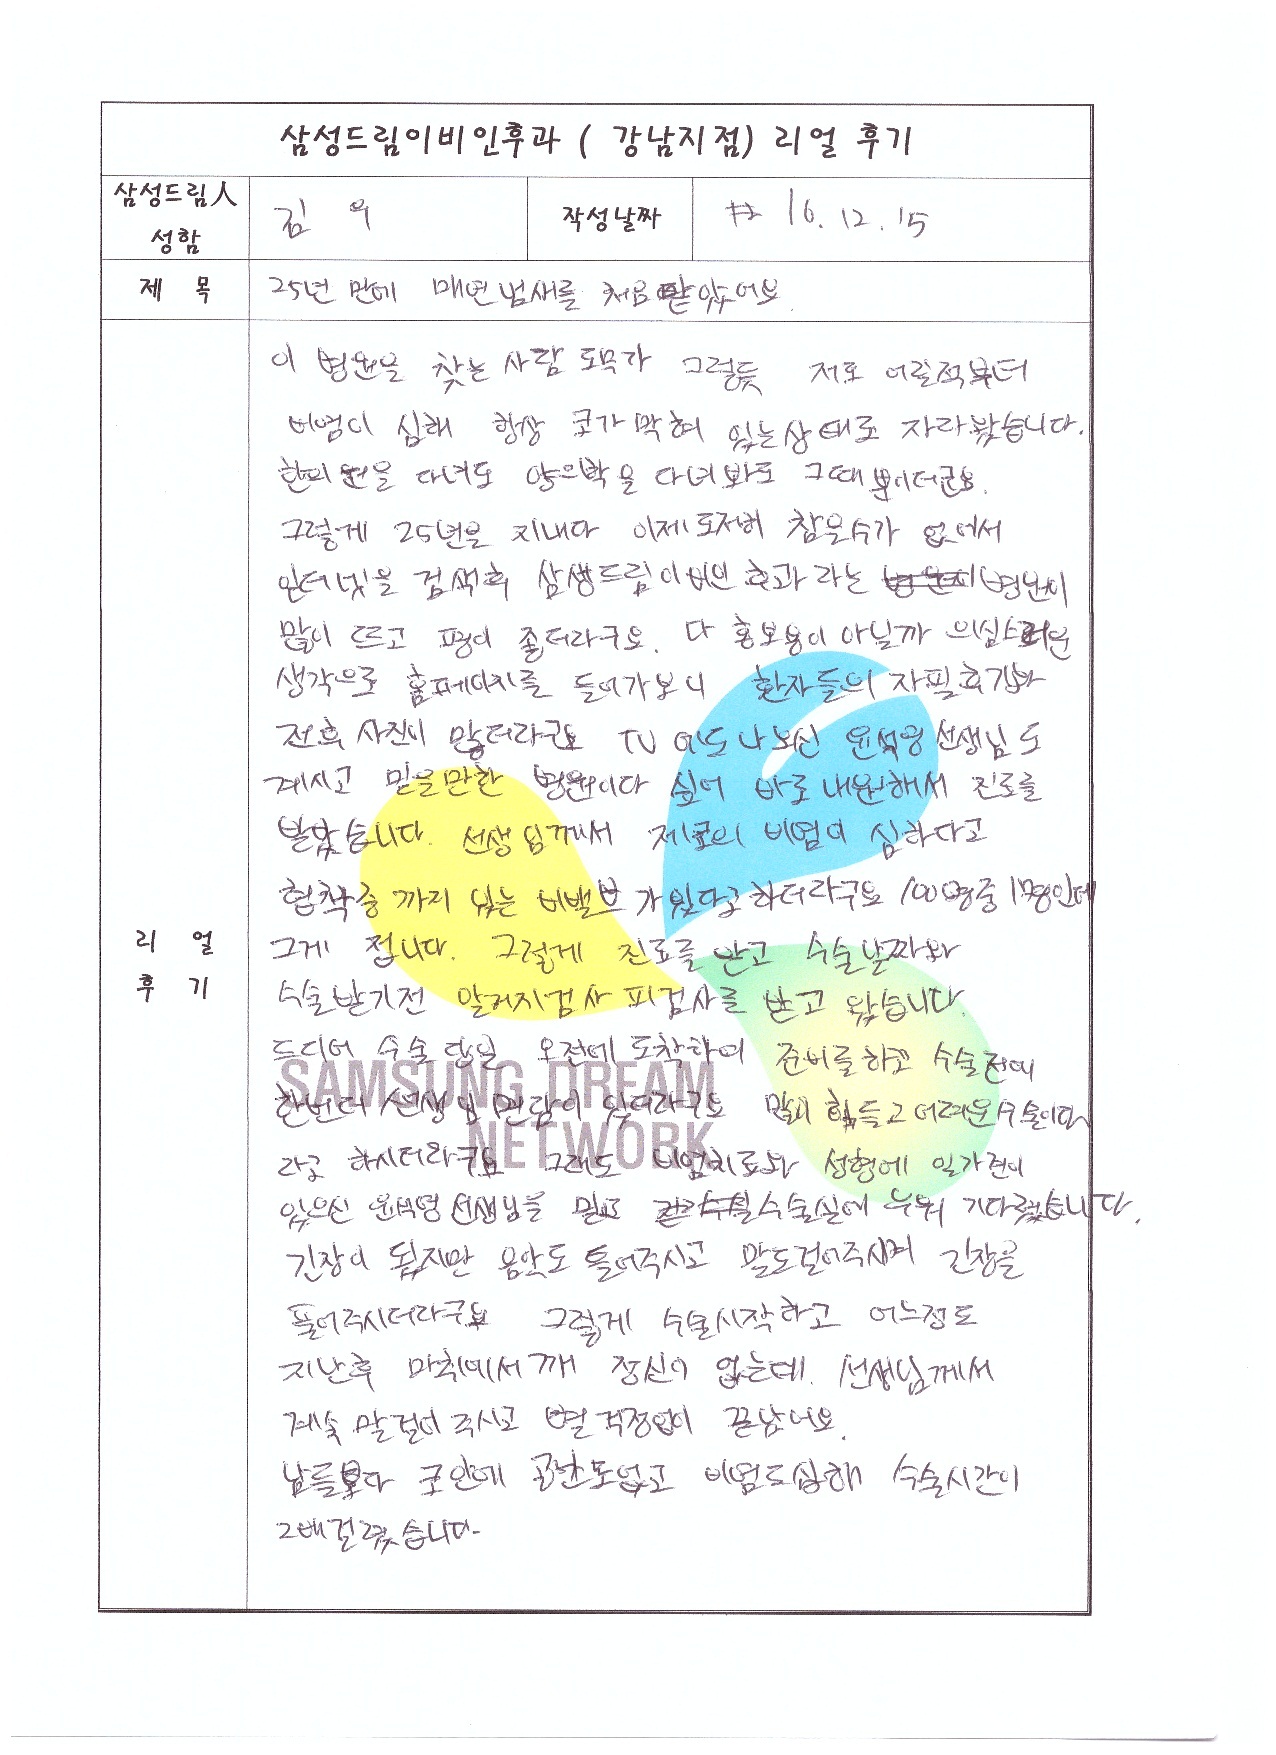 삼성드림이비인후과 ( 강남지점) 리얼 후기
삼성드림人 성함
김 우
작성날짜
16. 12. 15
제 목
25년 만에 매연냄새를 처음 맡았어요
리 얼 후 기
이 병원을 찾는 사람 모두가 그렇듯 저도 어릴적부터
비염이 심해 항상 코가 막혀 있는상태로 자라왔습니다.
한의원을 다녀도 양의학을 다녀봐도 그때뿐이더군요.
그렇게 25년을 지내다 이제 도저히 참을수가 없어서
인터넷을 검색후 삼성드림이비인후과 라는 병원이
많이 뜨고 평이 좋더라구요. 다 홍보용이 아닐까 의심스러운
생각으로 홈페이지를 들어가보니 환자들의 자필후기와
전후 사진이 많더라구요 TV 에도 나오신 윤석영 선생님도
계시고 믿을만한 병원이다 싶어 바로 내원해서 진료를
받았습니다. 선생님께서 제코의 비염이 심하다고
협착증 까지 있는 비밸브가 있다고 하더라구요 100명중 1명인데
그게 접니다. 그렇게 진료를 받고 수술날짜와
수술받기전 알러지검사 피검사를 받고 왔습니다.
드디어 수술 당일 오전에 도착하여 준비를하고 수술전에
한번더 선생님 면담이 있더라구요 많이 힘들고 어려운수술이다
라고 하시더라구요 그래도 비염치료와 성형에 일가견이
있으신 윤석영 선생님을 믿고 수술실에 누워 기다렸습니다.
긴장이 됬지만 음악도 틀어주시고 말도걸어주시며 긴장을
풀어주시더라구요 그렇게 수술시작하고 어느정도
지난후 마취에서 깨 정신이 없는데. 선생님께서
계속 말걸어 주시고 별 걱정없이 끝났어요.
남들보다 코안에 공간도없고 비염도심해 수술시간이
2배 걸렸습니다.
SAMSUNG DREAM
NETWORK